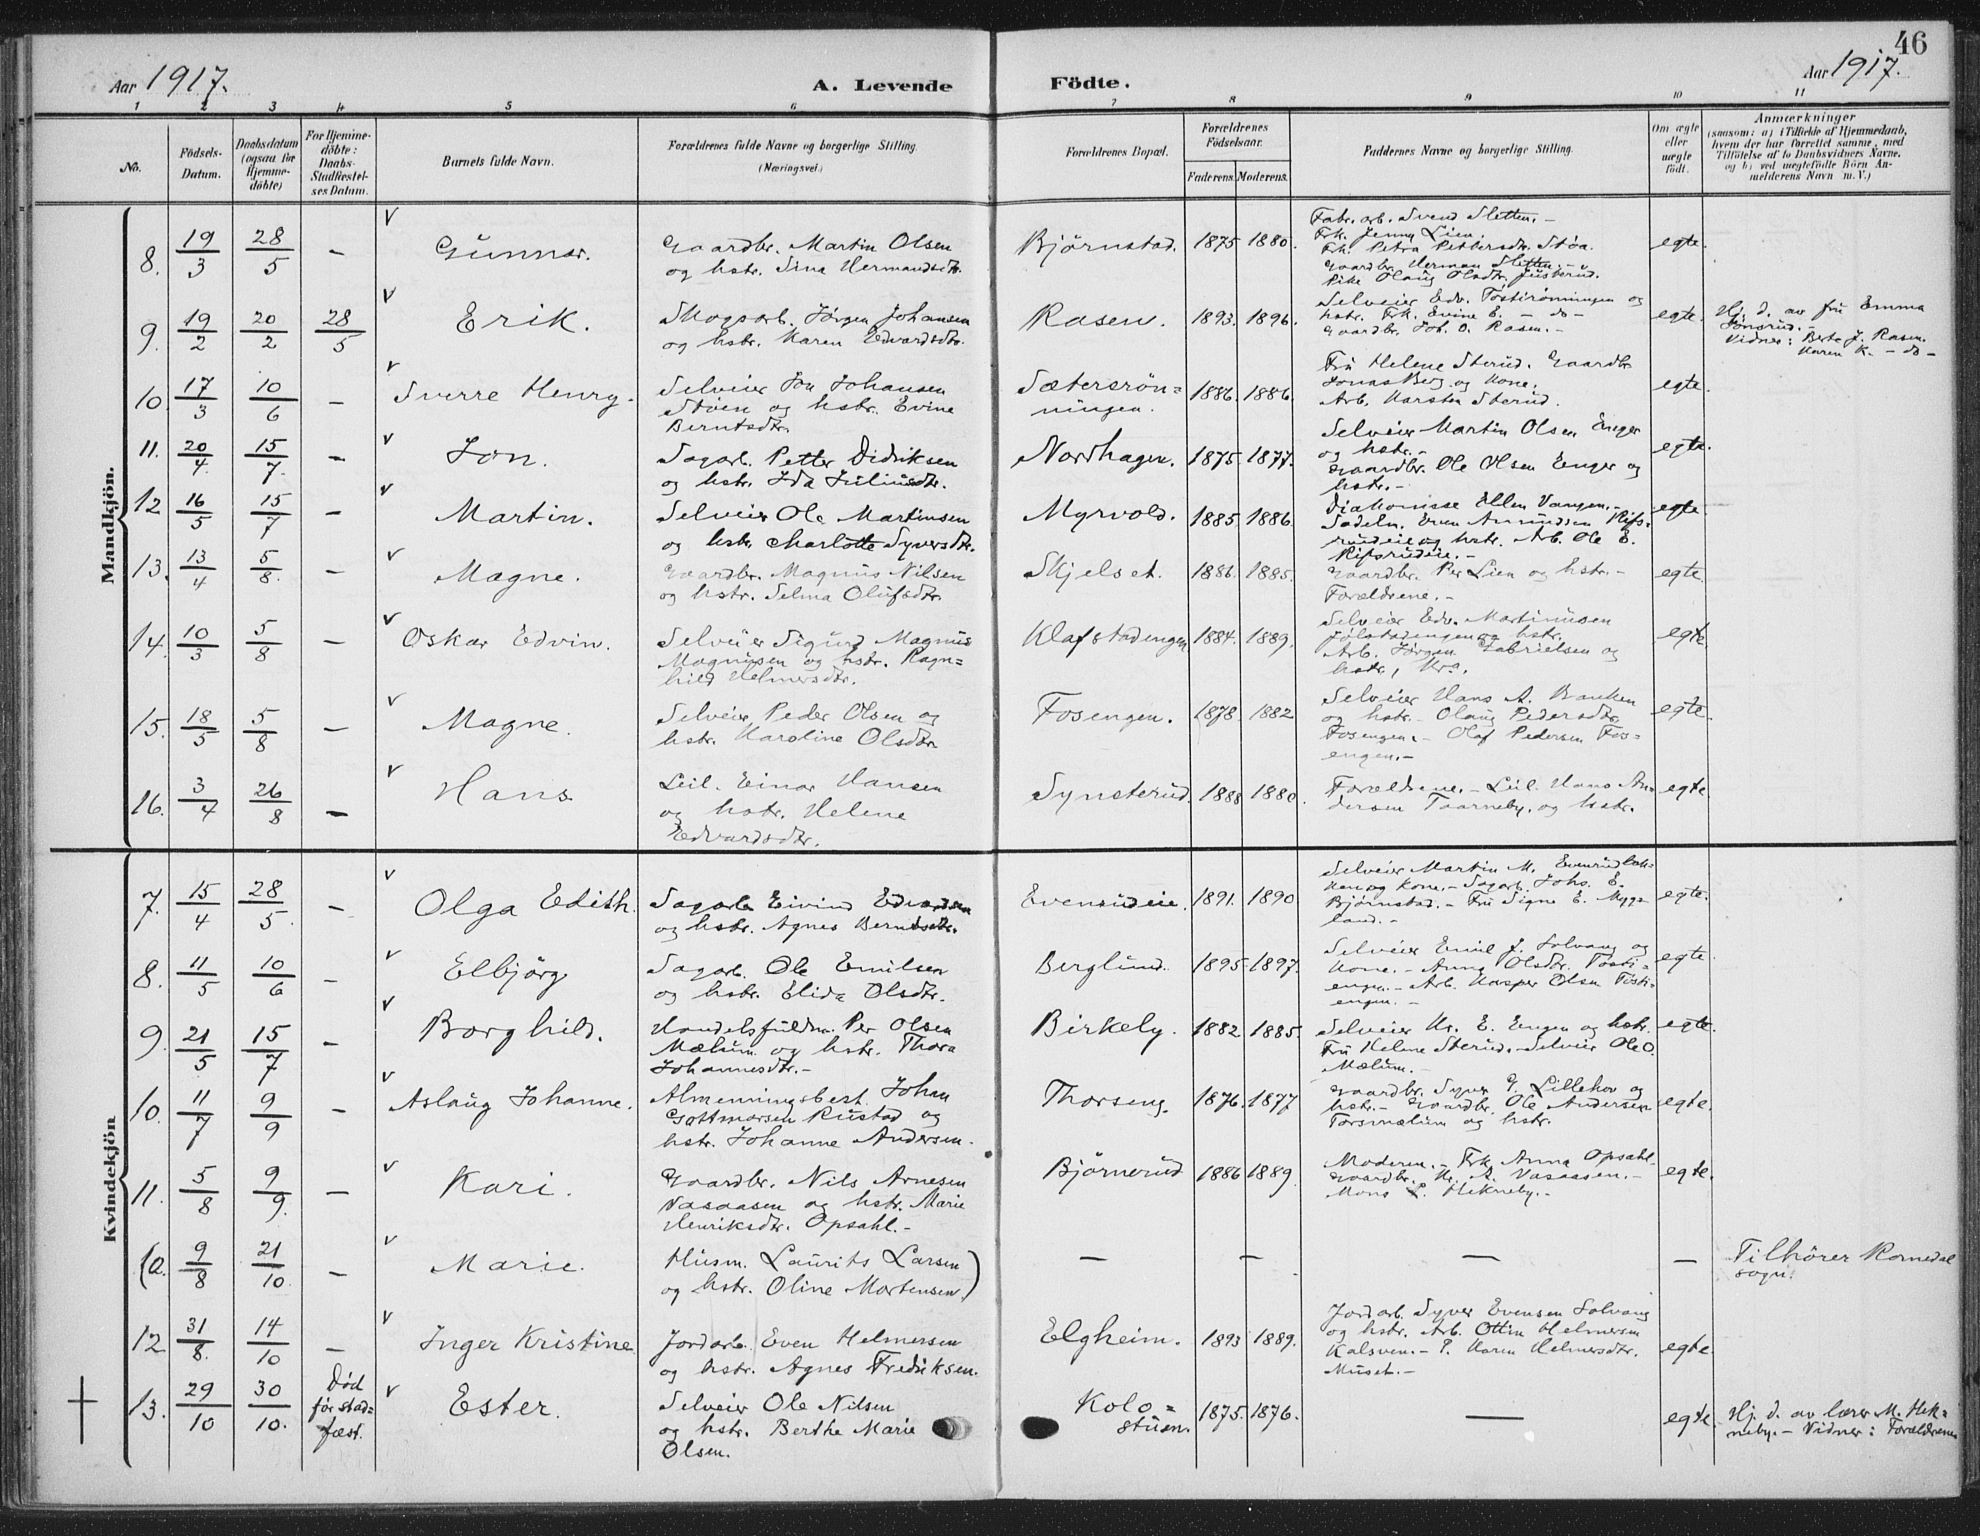 46
Aar 1917.
A. Levende Födte.
Aar 1917.
1 2 3 4 5 6 7 8 9 10 11
No.
Födsels-
Datum.
Daabsdatum
(ogsaa for
Hjemme-
döbte)
For Hjemme-
döbte:
Daabs-
Stadfæstel-
ses Datum.
Barnets fulde Navn.
Forældrenes fulde Navne og borgerlige Stilling
(Næringsvei.)
Forældrenes Bopæl.
Forældrenes
Födselsaar.
Faderens. Moderens.
Faddernes Navne og borgerlig Stilling.
Om ægte
eller
uægte
födt.
Anmærkninger
(saasom: a) i Tilfælde af Hjemmedaab,
hvem der har forrettet samme, med
Tilföielse af to Daabsvidners Navne,
og b) ved uægtefödte Börn An-
melderens Navn m. V.)
Mandkjön.
8. 19/3 28/5 – Gunnar.
Gaardbr. Martin Olsen
og hstr. Sina Hermandsdtr.
Bjørnstad. 1875 1880.
Fabr. arb. Svend Sletten. –
Frk. Jenny Lien.
Frk. Petra Pettersdtr. Støa.
Gaardbr. Herman Sletten. –
Pike Olaug Olsdtr. Justerud.
egte.
9. 19/2 20/2 28/5 Erik.
Skogsarb. Jørgen Johansen
og hstr. Karen Edvardsdtr.
Rasen. 1893. 1896.
Selveier Edv. Tøstirønningen og
hstr. Frk. Evine E. – do –
Gaardbr. Joh. O. Rasen. –
egte.
Hj. d. av fru Emma
Jønsrud. –
Vidner: Berte J. Rasen.
Karen K. – do –
10. 17/3 10/6 – Sverre Henry.
Selveier Jon Johansen
Støen og hstr. Evine
Berntsdtr.
Sætersrøn=
ningen.
1886. 1886.
Fru Helene Sterud. Gaardbr.
Jonas Berg og Kone.
Arb. Karsten Sterud.
egte.
11. 20/4 15/7 – Jon.
Sagarb. Petter Didriksen
og hstr. Ida Juliusdtr.
Nordhagen. 1875 1877.
Selveier Martin Olsen Enger
og hstr. –
Gaardbr. Ole Olsen Enger og
hstr. –
egte.
12 16/5 15/7 – Martin.
Selveier Ole Martinsen
og hstr. Charlotte Syversdtr.
Myrvold. 1885. 1886.
Diakonisse Ellen Vangen. –
Sadelm. Even Amundsen Rifs-
rudeie og hstr. Arb. Ole E.
Rifsrudeie. –
egte.
13. 13/4 5/8. – Magne.
Gaardbr. Magnus Nilsen
og hstr. Selma Olufsdtr.
Skjelset. 1886. 1885.
Gaardbr. Per Lien og hstr. –
Forældrene. –
egte.
14. 10/3 5/8 – Oskar Edvin.
Selveier Sigurd Magnus
Magnusen og hstr. Ragn=
hild Helmersdtr.
Klafstadengen 1884. 1889.
Selveier Edv. Martinusen
Jølstadengen og hstr.
Arb. Jørgen Gabrielsen og
hstr., Kra.
egte
15. 18/5 5/8 – Magne.
Selveier Peder Olsen og
hstr. Karoline Olsdtr.
Fosengen. 1878. 1882
Selveier Hans A. Banken
og hstr. – Olaug Pedersdtr.
Fosengen. – Olaf Pedersen Fos=
engen. –
egte.
16. 3/4 26/8 – Hans
Leil. Einar Hansen
og hstr. Helene
Edvardsdtr.
Synsterud. 1888 1880.
Forældrene. – Leil. Hans An=
dersen Taarneby, og hstr.
egte.
Kvindekjön
7. 15/4 28/5. – Olga Edith.
Sagarb. Eivind Edvardsen
og hstr. Agnes Berntsdtr.
Evenrudeie. 1891. 1890
Selveier Martin M. Evenrudløk=
ken og Kone. – Sagarb. Johs. E.
Bjørnstad. – Fru Signe E. Mygg=
land. –
egte.
8. 11/5 10/6 – Elbjörg
Sagarb. Ole Emilsen
og hstr. Elida Olsdtr.
Berglund. 1895. 1897.
Selveier Emil J. Solvang og
Kone. – Anna Olsdtr. Tøsti=
engen. – Arb. Kasper Olsen Tøsti-
engen. –
egte
9. 21/5 15/7 – Borghild.
Handelsfuldm. Per Olsen
Mælum og hstr. Thora
Johannesdtr. –
Birkely. 1882 1885.
Selveier Kr. E. Engen og hstr.
Fru Helene Sterud. – Selveier Ole O.
Mælum. –
egte.
10. 11/7 9/9 – Aslaug Johanne.
Almenningsbest. Johan
Gottmarsen Rustad og
hstr. Johanne Andersen.
Thorseng. 1876. 1877
Gaardbr. Syver G. Lillehov og
hstr. – Gaardbr. Ole Andersen
Torsmælum og hstr.
egte.
11. 5/8 9/9. – Kari.
Gaardbr. Nils Arnesen
Vasaasen og hstr. Marie
Henriksdtr. Opsahl. –
Bjørnerud 1886 1889.
Moderen. – Frk. Anna Opsahl.
Gaardbr. Kr. A. Vasaasen. –
Mons L. Hekneby. –
egte.
(a. 9/8 21/10. – Marie.
Husm. Laurits Larsen
og hstr. Oline Mortensen.)
– – – –
Tilhörer Romedal
sogn.
12. 31/8. 14/10 – Inger Kristine
Jordarb. Even Helmersen
og hstr. Agnes Fredriksen.
Elgheim. 1893 1889.
Jordarb. Syver Evensen Solvang
og hstr. Arb. Ottin Helmersen
Kalsveen. – P. Karen Helmersdtr.
Muset. –
egte.
13. 29/10 30/10. Død
før stad=
fæst.
Ester.
Selveier Ole Nilsen
og hstr. Berthe Marie
Olsen.
Kolo=
stuen.
1875. 1876.
–
egte.
Hj. d. av lærer M. Hek=
neby. – Vidner: Forældrene